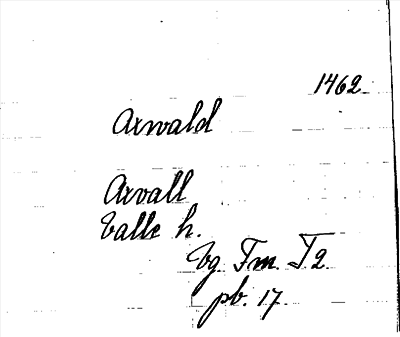 1462
Arwald
Arvall
Valle h.
Vg. Fm. T2
pb. 17.